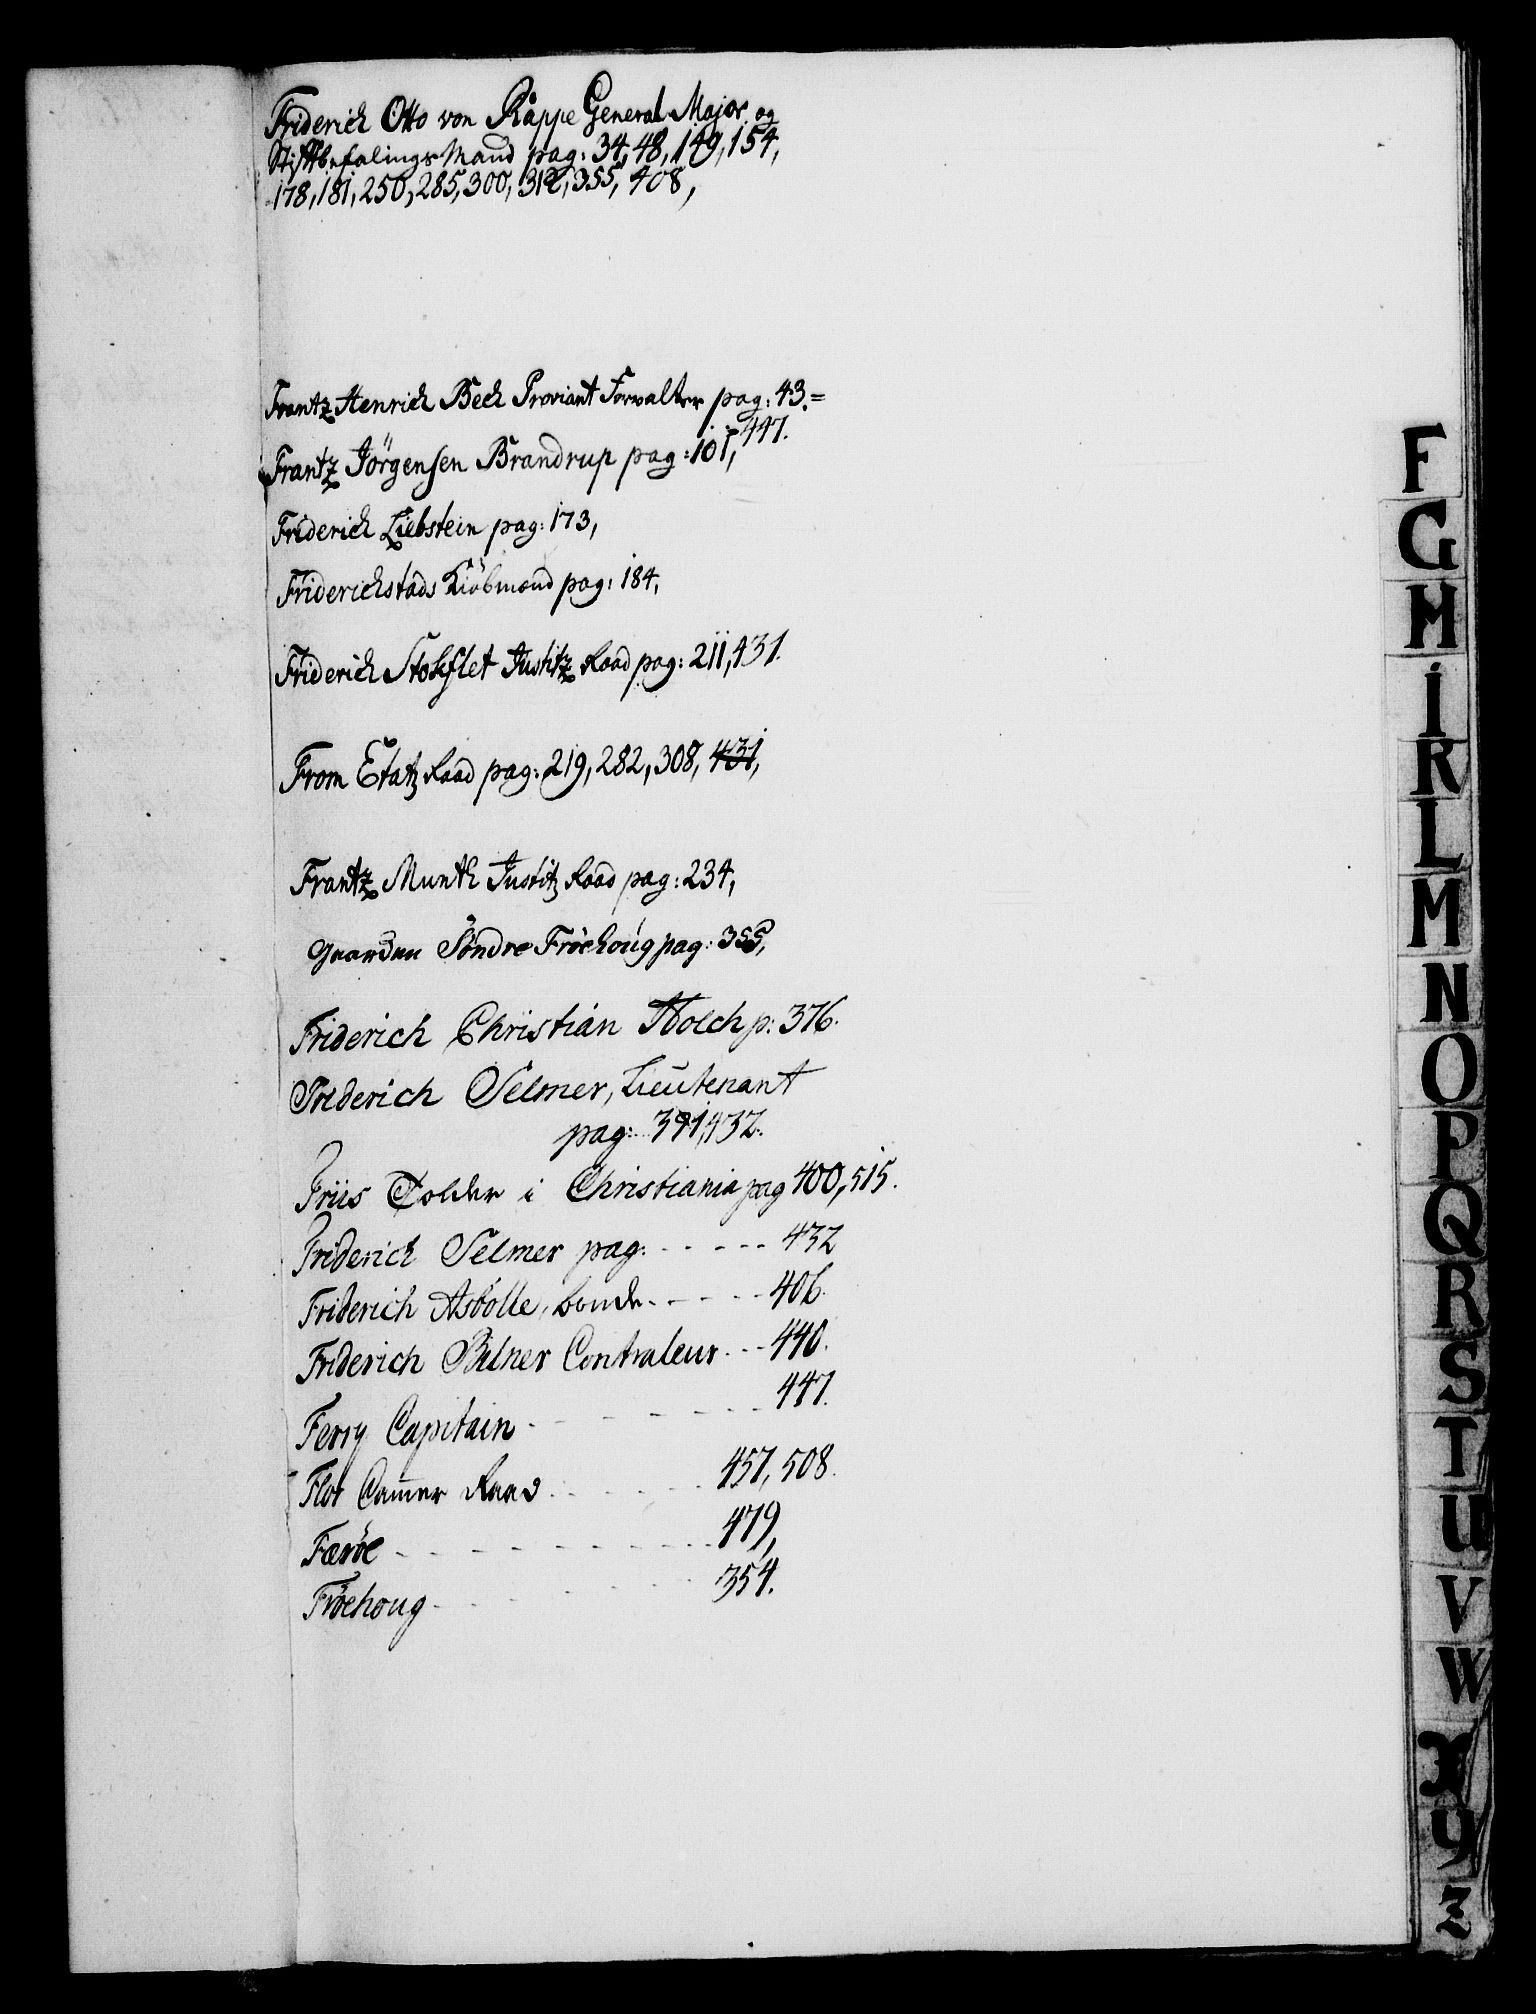 Friderich Otto von Råppe General Major og
Stiftbefalings Mand pag: 34, 48, 149, 154,
178, 181, 250, 285, 300, 312, 355, 408,
Frantz Henrich Beck Proviant Forvalter pag: 43.=
447.
Frantz Jörgensen Brandrup pag: 101,
Friderich Liebstein pag: 173,
Friderichstads Kiöbmænd pag: 184,
Friderich Stokflet Justitz Raad pag: 211, 431.
From Etatz Raad pag: 219, 282, 308, 431,
Frantz Munth Justitz Raad pag: 234,
Gaarden Söndre Fröehoug pag: 355,
Friderich Christian Holch p: 376.
Friderich Selmer, Lieutenant
pag: 391, 432.
Friis Tolder i Christiania pag 400, 515.
Friderich Selmer pag: - - - - - 432
Friderich Asbölle, bonde - - - - 406.
Friderich Bilner Contraleur - - - 440.
Ferry Capitain - - - - - 447.
Flor Cammer Raad - - - - - 457, 508.
Færöe - - - - - - - - - 479,
Fröehoug - - - - - - 354.
F
G
H
I
K
L
M
N
O
P
Q
R
S
T
U
V
W
X
Y
Z